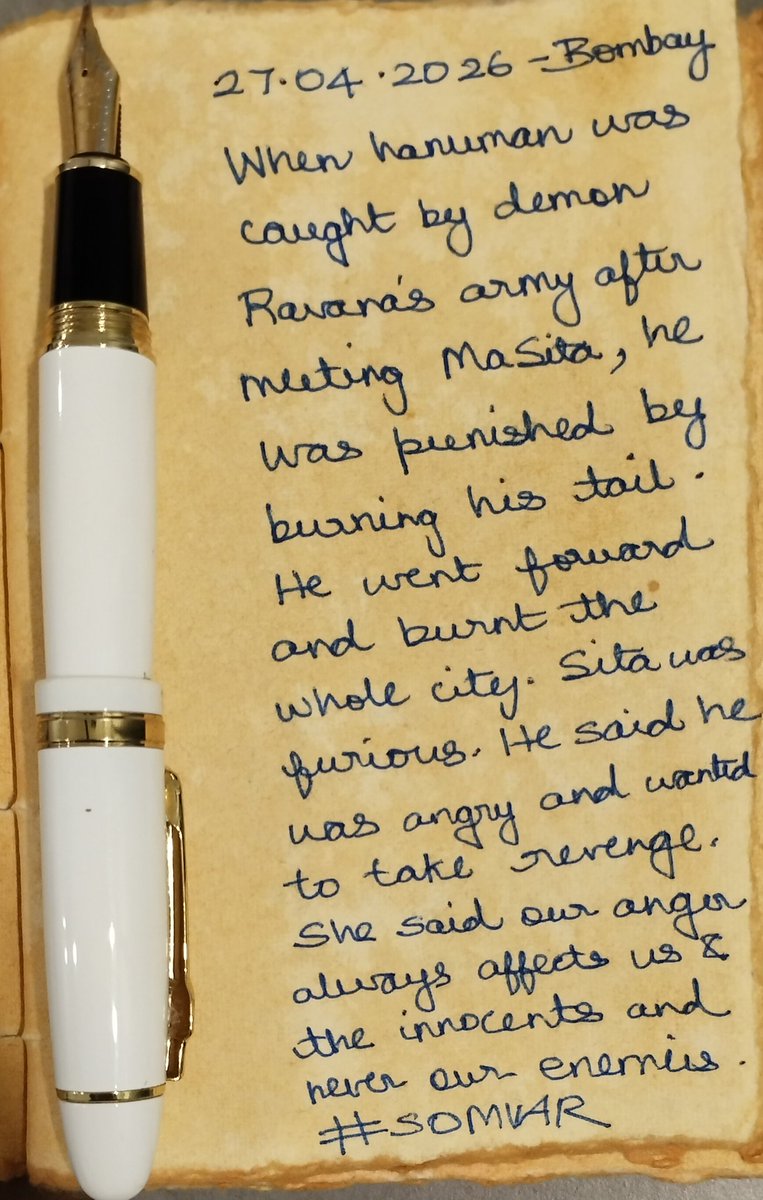 27.04.2026 - Bombay
When hanuman was
caught by demon
Ravana's army after
meeting MaSita, he
was punished by
burning his tail.
He went forward
and burnt the
whole city. Sita was
furious. He said he
was angry and wanted
to take revenge.
She said our anger
always affects us &
the innocents and
never our enemies.
#SOMVAR